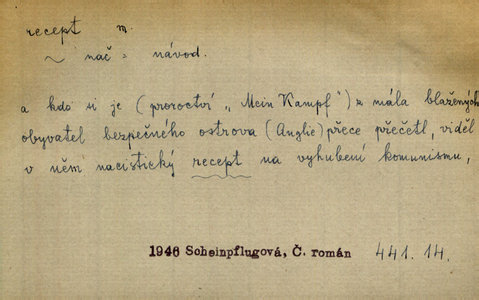 recept m.
~ nač = návod.
a kdo si je (proroctví „Mein Kampf") z mála blažených
obyvatel bezpečného ostrova (Anglie) přece přečetl, viděl
v něm nacistický recept na vyhubení komunismu,
1946 Scheinpflugová, Č. román 441.14.